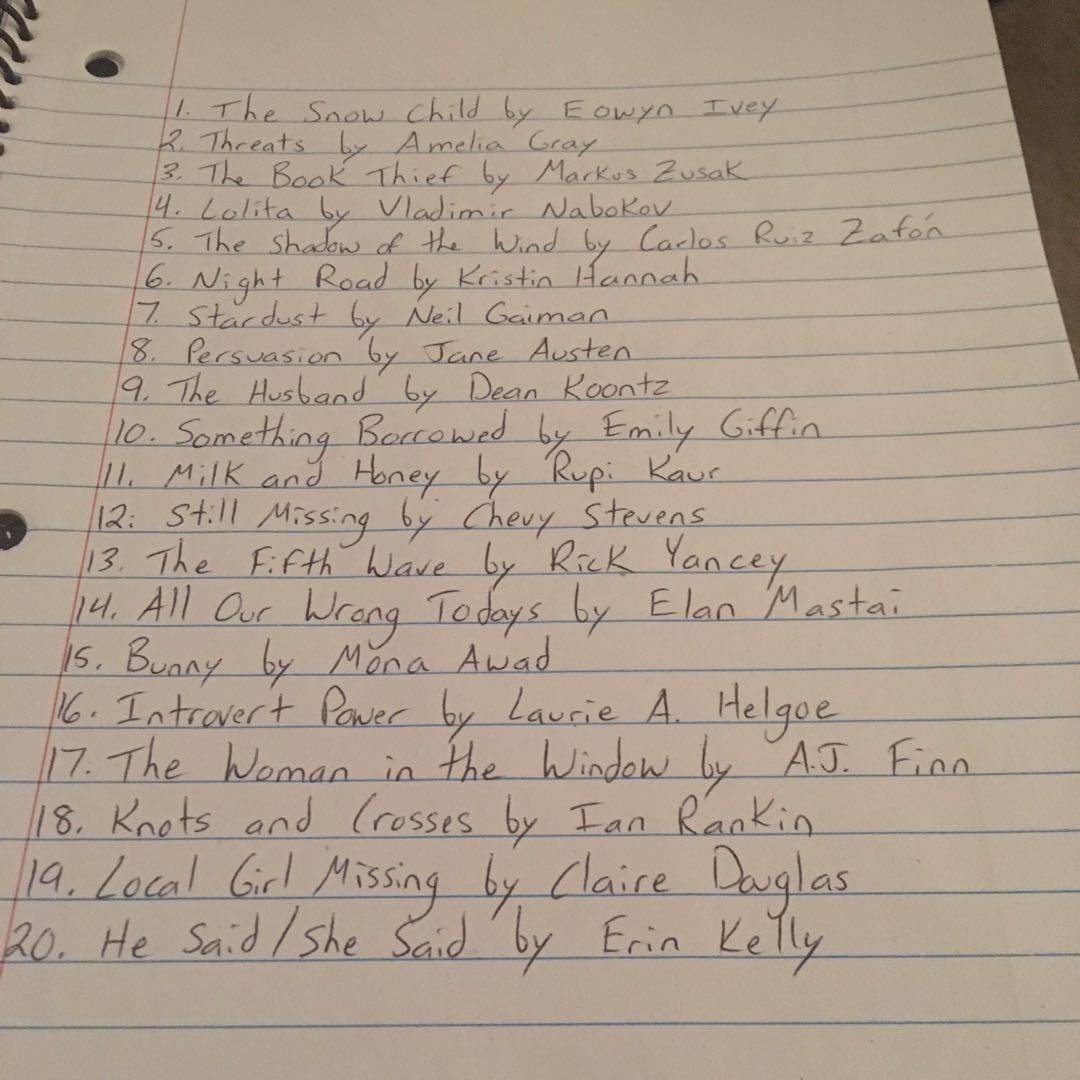 1. The Snow Child by Eowyn Ivey
2. Threats by Amelia Gray
3. The Book Thief by Markus Zusak
4. Lolita by Vladimir Nabokov
5. The Shadow of the Wind by Carlos Ruiz Zafón
6. Night Road by Kristin Hannah
7. Stardust by Neil Gaiman
8. Persuasion by Jane Austen
9. The Husband by Dean Koontz
10. Something Borrowed by Emily Giffin
11. Milk and Honey by Rupi Kaur
12. Still Missing by Chevy Stevens
13. The Fifth Wave by Rick Yancey
14. All Our Wrong Todays by Elan Mastai
15. Bunny by Mona Awad
16. Introvert Power by Laurie A. Helgoe
17. The Woman in the Window by A.J. Finn
18. Knots and Crosses by Ian Rankin
19. Local Girl Missing by Claire Douglas
20. He Said/She Said by Erin Kelly